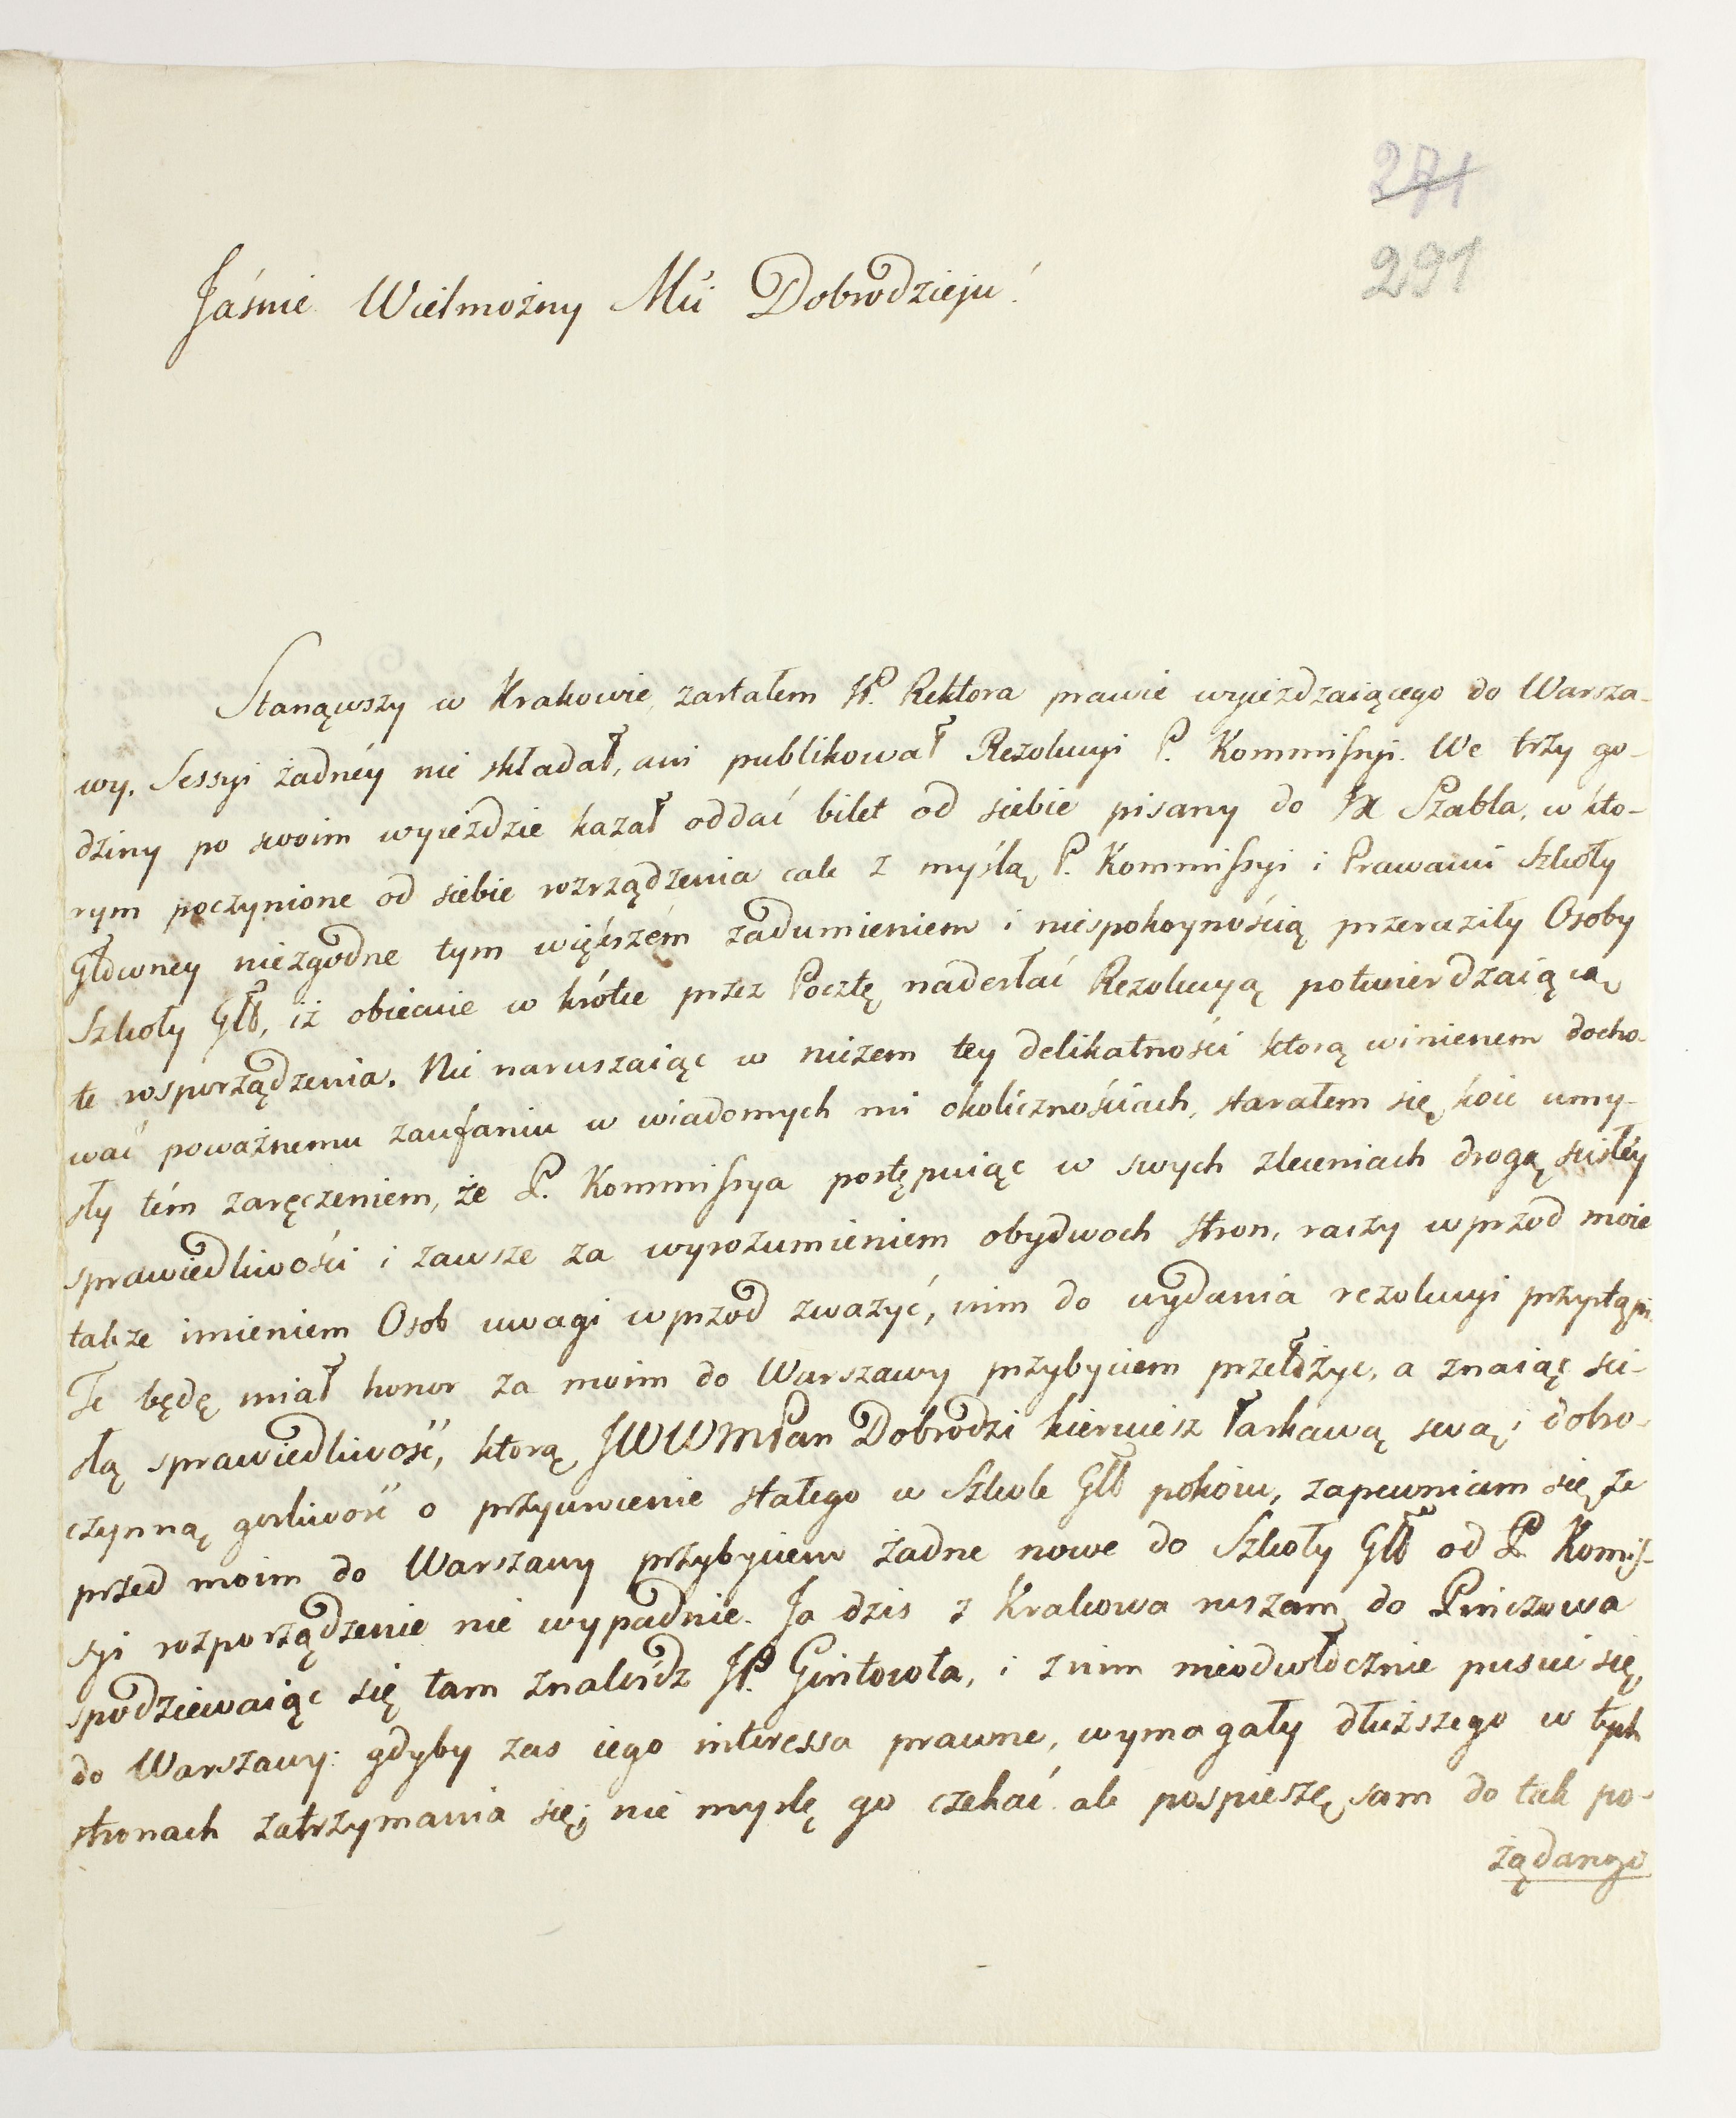 271
291
Jaśnie Wielmożny Mci Dobrodzieju
Stanąwszy w Krakowie, zastałem JP. Rektora prawie wyieżdzaiącego do Warsza-
wy. Sessyi żadnéy nie składał, ani publikował Rezolucyi P. Kommissyi. We trzy go-
dziny po swoim wyieżdzie kazał oddać bilet od siebie pisany do JX Szabla, w kto-
rym poczynione od siebie rozrządzenia cale z myślą P. Kommissyi i Prawami Szkoły
Główney niezgodne tym większém zadumieniem i niespokoynością przeraziły Osoby
Szkoły Głł, iż obiecuie w krótce przez Pocztę nadesłać Rezolucyą potwierdzaiącą
te rosporządzenia. Nie naruszaiąc w niczem tey delikatności ktorą winienem docho-
wać poważnemu zaufaniu w wiadomych mi okolicznościach, starałem się koić umy-
sły tém zaręczeniem, że P. Kommissya postępuiąc w swych zleceniach drogą scisłéy
sprawiedliwości i zawsze za wyrozumieniem obydwoch stron, raczy wprzod moie
także imieniem Osob uwagi wprzod zważyć, nim do wydania rezolucyi przystąpi.
Te będę miał honor za moim do Warszawy przybyciem przełożyć, a znaiąc sci-
słą sprawiedliwość, ktorą JWWMPan Dobrodzi kieruiesz łaskawą swą i dobro-
czynną gorliwość o przywrocenie stałego w Szkole Głł pokoiu, zapewniam się że
przed moim do Warszawy przybyciem żadne nowe do Szkoły Głł od P. Komis-
syi rozporządzenie nie wypadnie. Ja dzis z Krakowa ruszam do Pinczowa
spodziewaiąc się tam znaleśdz JP. Gintowta, i z nim nieodwłocznie puscić się
do Warszawy: gdyby zas iego interessa prawne, wymagały dłuższego w tych
stronach zatrzymania się; nie myslę go czekać ale pospieszę sam do tak po-
żądango